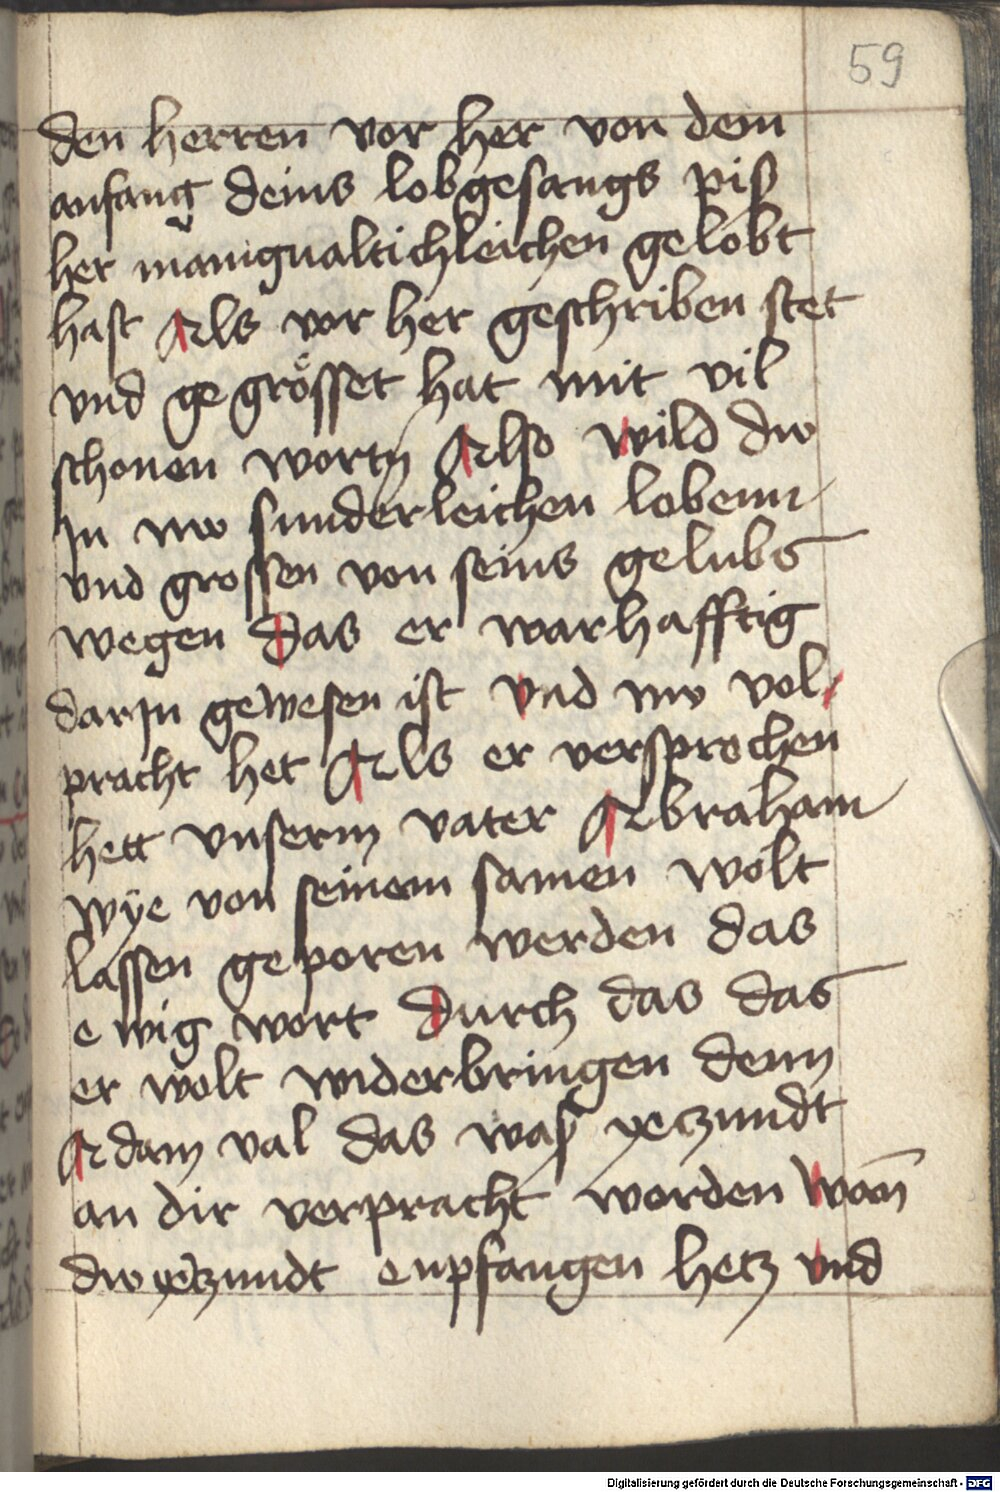 59
den herren vor her von dem
anfang deins lobgesangs pis
her manigualtichleichen gelobt
hast Als vor her geschriben stet
vnd ge grösset hat mit vil
schonen wortn Also wild dw
In nw sunderleichen lobenn
vnd grossen von seins gelubs
wegen das er warhafftig
darIn gewesen ist vnd nw vol
pracht het Als er versprochen
hett vnserm vater Abraham
wye von seinem samen wolt
lassen geporen werden das
ewig wort durch das das
er wolt widerbringen denn
Adam val das was yeczundt
an dir verpracht worden wan̄
dw yeczundt enpfangen hetz vnd
Digitalisierung gefördert durch die Deutsche Forschungsgemeinschaft - DFG